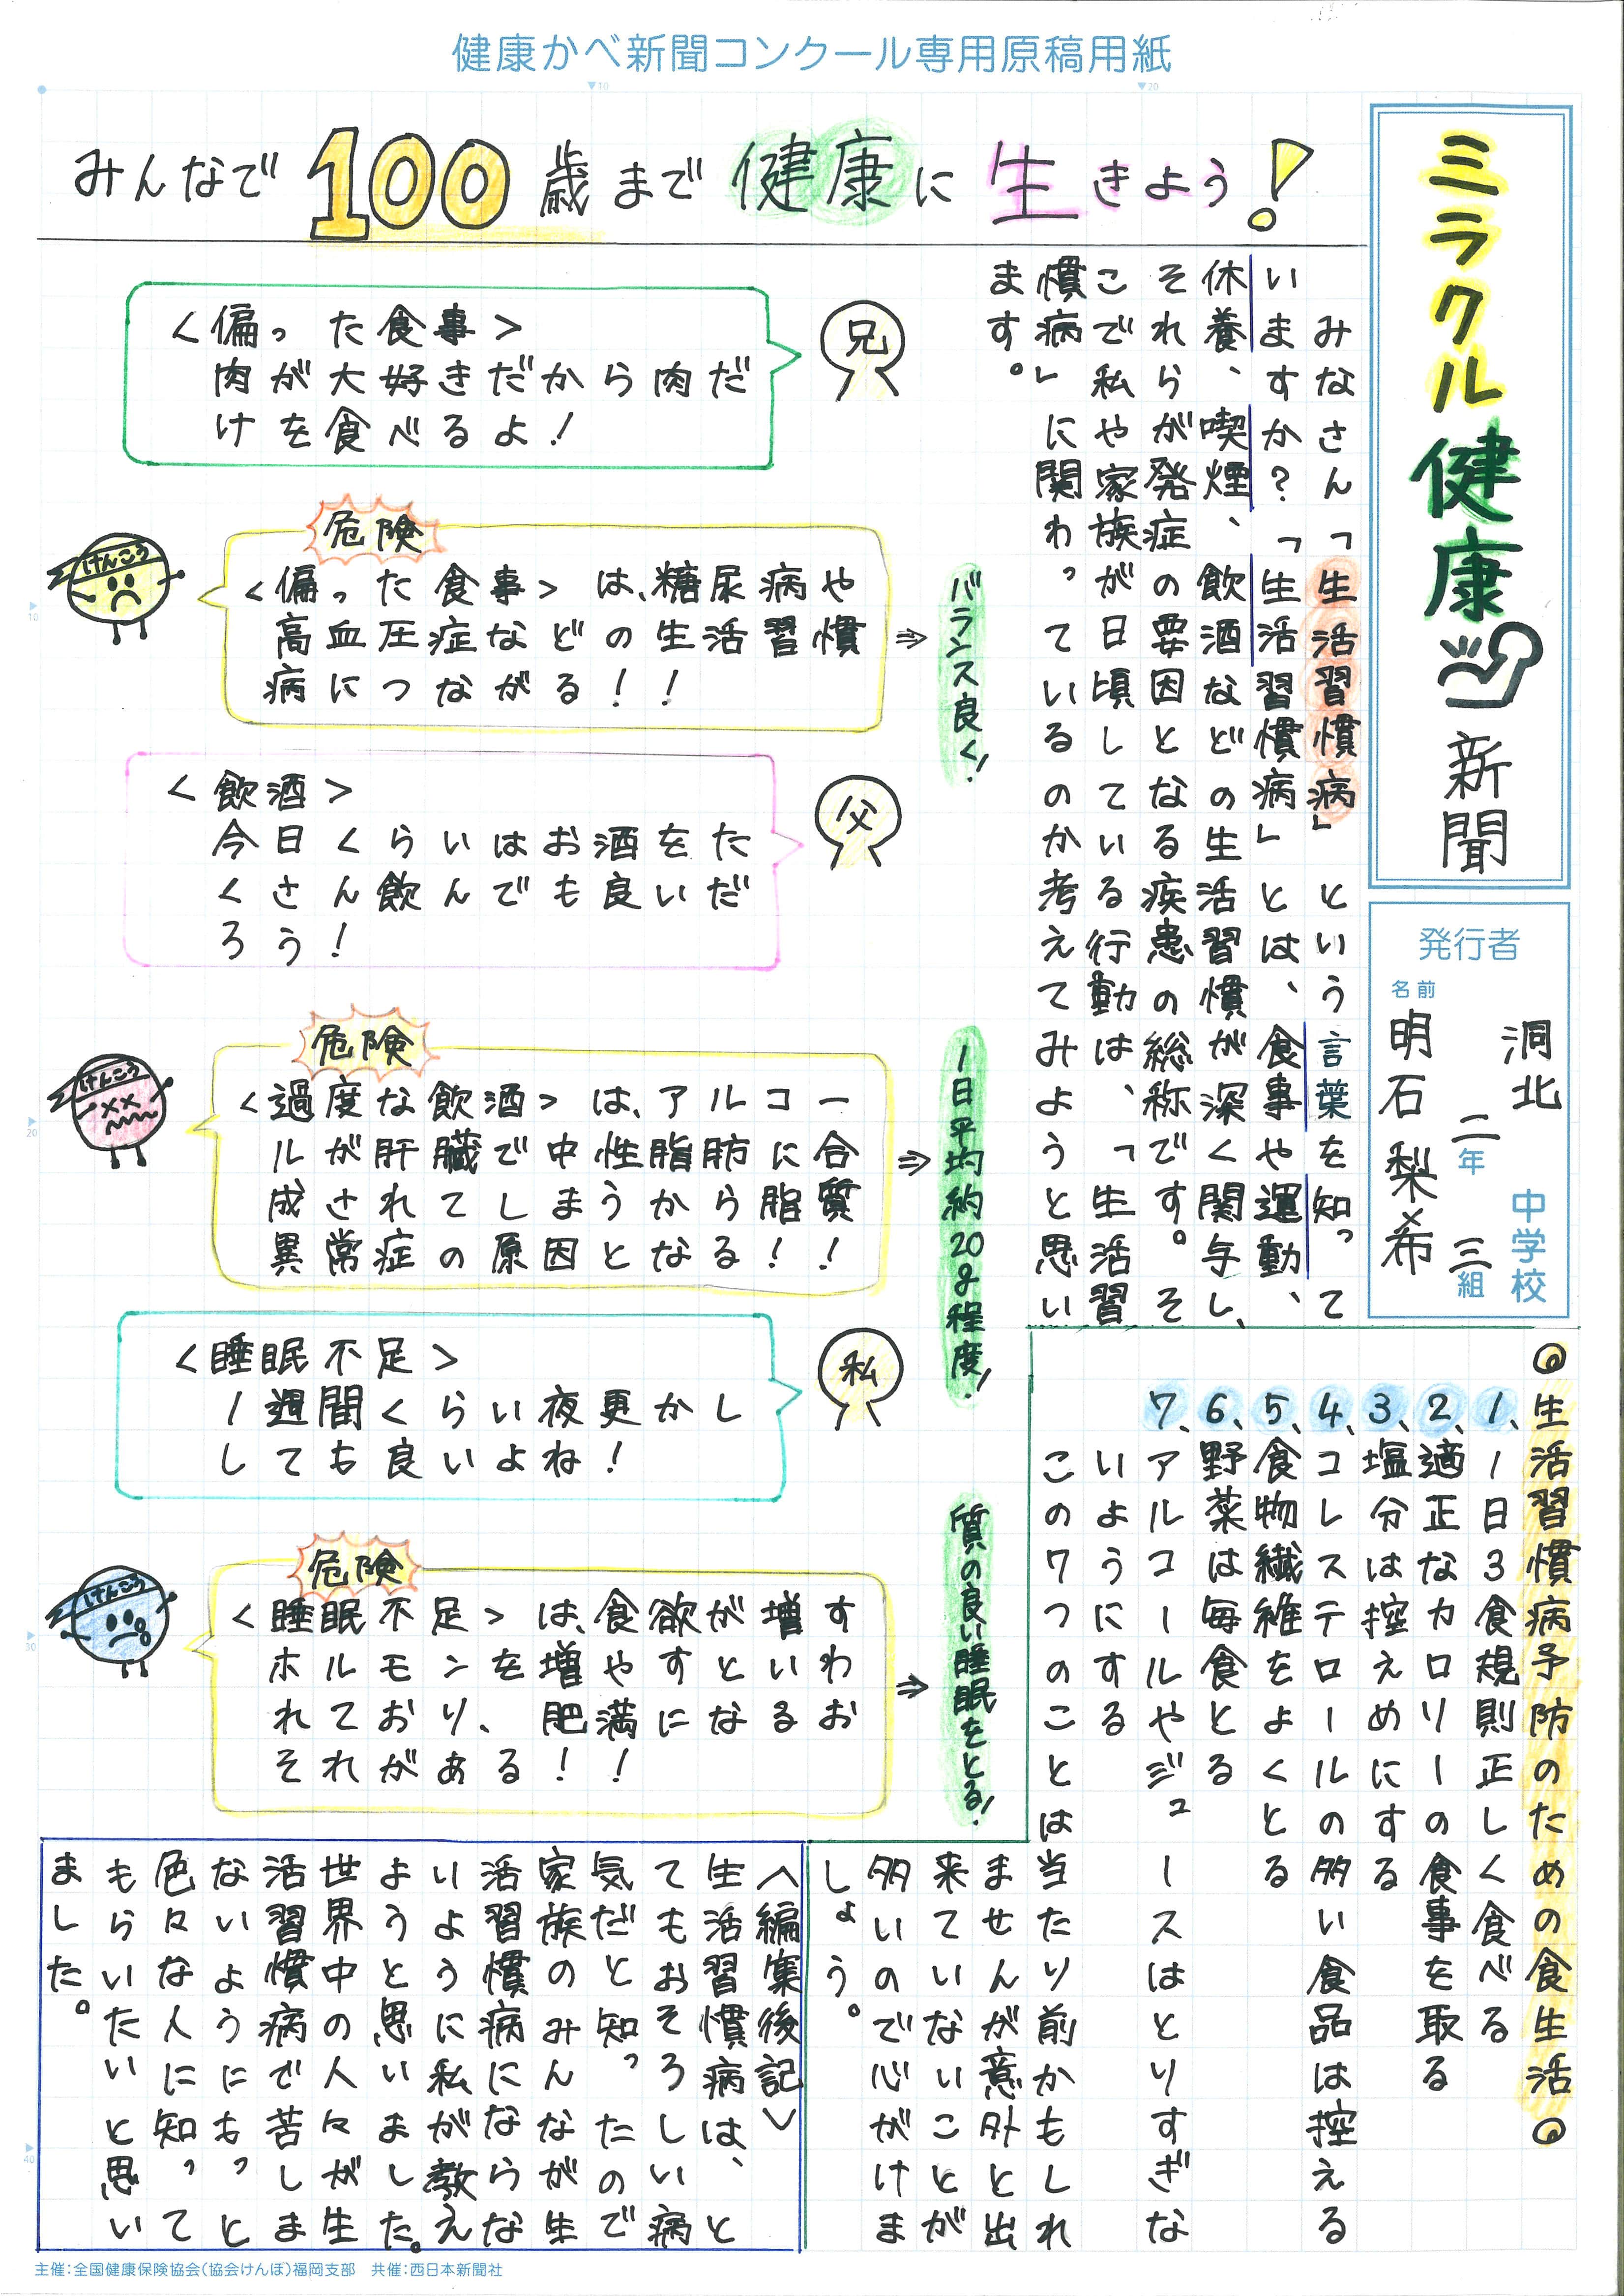 健康かべ新聞コンクール専用原稿用紙
ミラクル健康新聞
発行者
名前
洞北
中学校
二年
三組
明石 梨々希
みんなで100歳まで健康に生きよう!
みなさん「生活習慣病」という言葉を知って
いますか?「生活習慣病」とは、食事や運動、
休養、喫煙、飲酒などの生活習慣が深く関与し、
それらが発症の要因となる疾患の総称です。そ
こで私や家族が日頃している行動は、「生活習
慣病」に関わっているのか考えてみようと思い
ます。
兄
<偏った食事>
肉が大好きだから肉だ
けを食べるよ!
けんこう
危険
<偏った食事>は、糖尿病や
高血圧症などの生活習慣
病につながる!!
⇒
バランス良く!
父
<飲酒>
今日くらいはお酒をた
くさん飲んでも良いだ
ろう!
けんこう
危険
<過度な飲酒>は、アルコー
ルが肝臓で中性脂肪に合
成されてしまうから脂質
異常症の原因となる!!
⇒
1日平均約20g程度!
私
<睡眠不足>
1週間くらい夜更かし
しても良いよね!
けんこう
危険
<睡眠不足>は、食欲が増す
ホルモンを増やすといわ
れており、肥満になるお
それがある!!
⇒
質の良い睡眠をとる!
◎生活習慣病予防のための食生活◎
1、1日3食規則正しく食べる
2、適正なカロリーの食事を取る
3、塩分は控えめにする
4、コレステロールの多い食品は控える
5、食物繊維をよくとる
6、野菜は毎食とる
7、アルコールやジュースはとりすぎな
いようにする
この7つのことは当たり前かもしれ
ませんが意外と出
来ていないことが
多いので心がけま
しょう。
<編集後記>
生活習慣病は、と
てもおそろしい病
気だと知ったので
家族のみんなが生
活習慣病にならな
いように私が教え
ようと思いました。
世界中の人々が生
活習慣病で苦しま
ないようにもっと
色々な人に知って
もらいたいと思い
ました。
主催:全国健康保険協会(協会けんぽ)福岡支部 共催:西日本新聞社